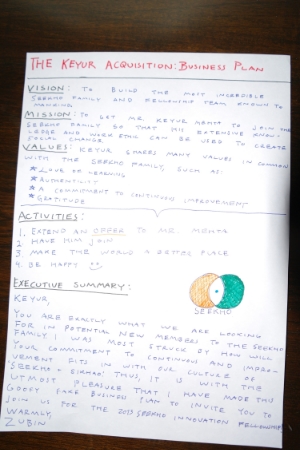 THE KEYUR ACQUISITION: BUSINESS PLAN
VISION: TO BUILD THE MOST INCREDIBLE
SEEKHO FAMILY AND FELLOWSHIP TEAM KNOWN TO
MANKIND
MISSION: TO GET MR. KEYUR MEHTA TO JOIN THE
SEEKHO FAMILY SO THAT HIS EXTENSIVE KNOW-
LEDGE AND WORK ETHIC CAN BE USED TO CREATE
SOCIAL CHANGE
VALUES: KEYUR SHARES MANY VALUES IN COMMON
WITH THE SEEKHO FAMILY, SUCH AS:
* LOVE OF LEARNING
* AUTHENTICITY
* A COMMITMENT TO CONTINUED IMPROVEMENT
* GRATITUDE
ACTIVITIES:
1. EXTEND AN OFFER TO MR. MEHTA
2. HAVE HIM JOIN
3. MAKE THE WORLD A BETTER PLACE
4. BE HAPPY
SEEKHO
EXECUTIVE SUMMARY:
KEYUR,
YOU ARE EXACTLY WHAT WE ARE LOOKING
FOR IN POTENTIAL NEW MEMBERS TO THE SEEKHO
FAMILY. I WAS MOST STRUCK BY HOW WELL
YOUR COMMITMENT TO CONTINUOUS IMPROV-
EMENT FITS IN WITH OUR CULTURE OF
"SEEKHO" THUS, IT IS WITH THE
UTMOST PLEASURE THAT I HAVE MADE THIS
GOOFY FAKE BUSINESS PLAN TO INVITE YOU TO
JOIN US FOR THE 2013 SEEKHO INNOVATION FELLOWSHIP
WARMLY,
ZUBIN